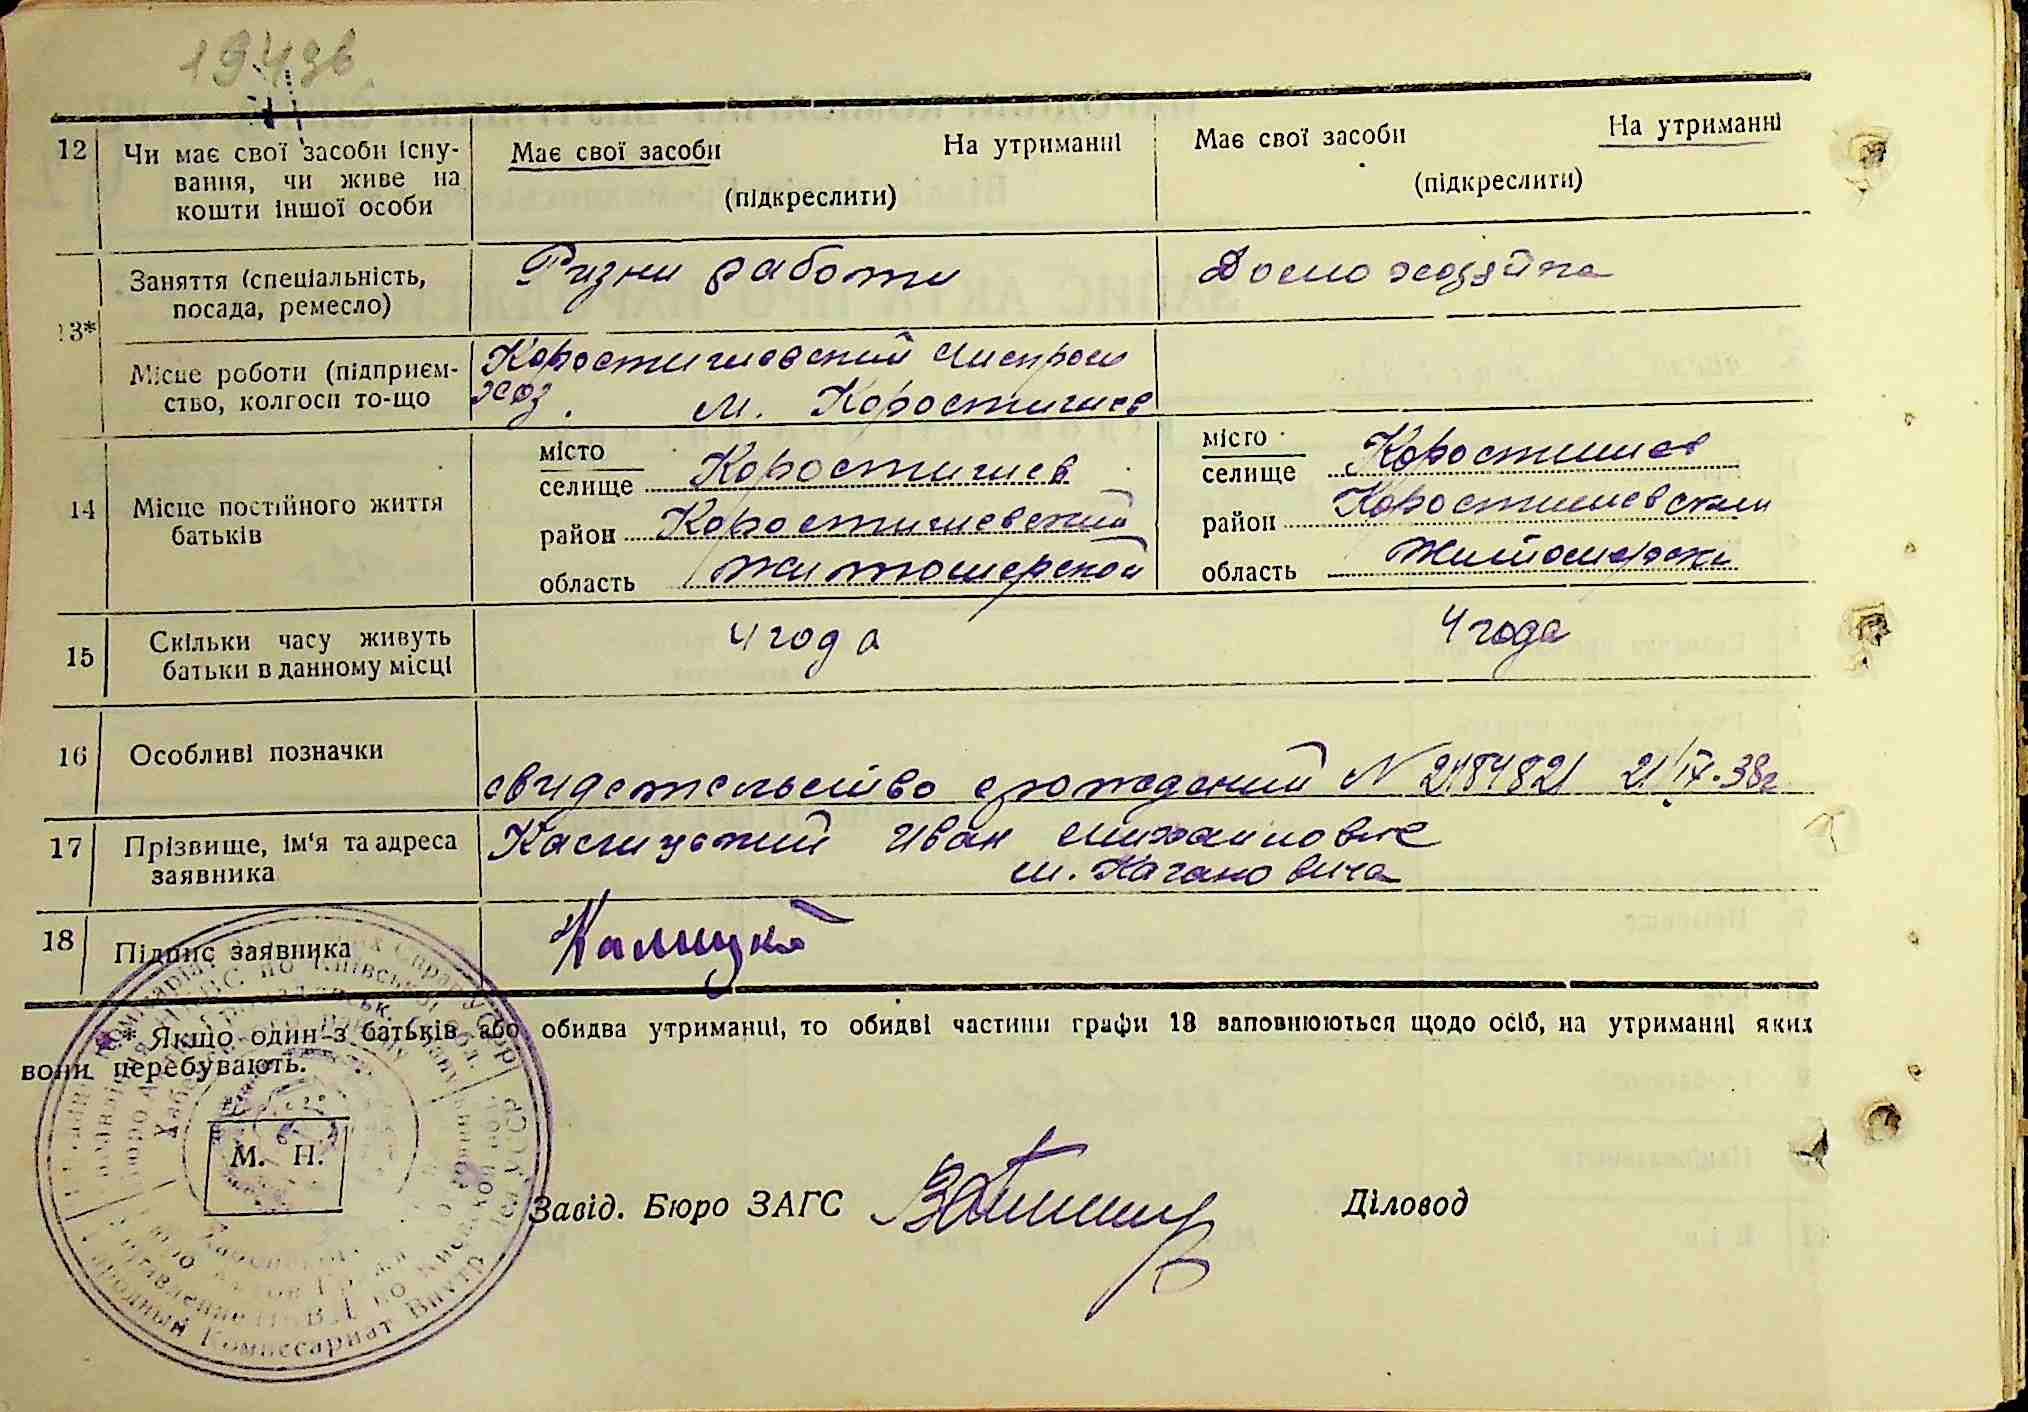 12 Чи має свої засоби існу-
вання, чи живе на
кошти іншої особи
Має свої засоби На утриманні
(підкреслити)
Має свої засоби На утриманні
(підкреслити)
13*
Заняття (спеціальність,
посада, ремесло)
Ризни работи
Домохозяйка
Місце роботи (підприєм-
ство, колгосп то-що
м. Коростишев
14 Місце постійного життя
батьків
місто
селище Коростишев
район Коростишевский
область Житомерской
місто
селище Коростишев
район
область
15 Скільки часу живуть
батьки в данному місці
4 года
4 года
16 Особливі позначки
свидетельство о рождении N 2184821 21/IV-38г
17 Прізвище, ім'я та адреса
заявника
Иван Михайлович
м. Кагановича
18 Підпис заявника
* Якщо один з батьків або обидва утриманці, то обидві частини графи 13 заповнюються щодо осіб, на утриманні яких
вони перебувають.
М. П.
Завід. Бюро ЗАГС
Діловод